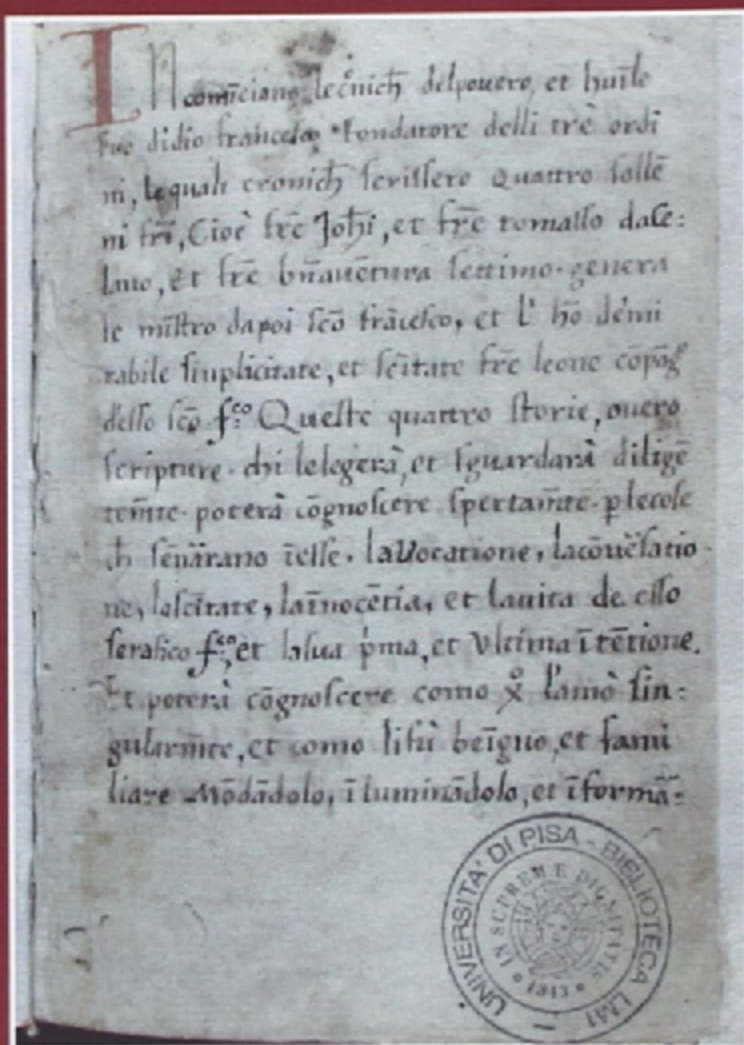 INcomīciano lecr̄nich̄ delpouero, et huīle
suo didio francesco, Fondatore delli trè ordi
ni, lequali cronich̄ scrissero Quattro sollē
ni fr̄i, Cioè fr̄e Joh̄i, et fr̄e tomasso dace:
lano, et fr̄e bn̄auētura settimo generа
le mīstro dapoi sc̄o frācesco, et l' ho dèmi
rabile simplicitate, et sc̄itate fr̄e leone cōpāg̊
dèsso sc̄o f:ᶜᵒ Queste quattro storie, ouero
scripture · chi lelegerà, et sguardarà diligē
tem̄te · poterà cōgnoscere spertam̄te · p̱ lecose
ch̄ senārano īesse · laVocatione, lacōuersatio
ne, lasc̄itate, laīnocētia, et lauita de esso
serafico f:ᶜᵒ, et lasua p̍ma, et Vltima ītētione.
Et poterà cōgnoscere como x̊ l'amò sin:
gularm̄te, et como lifù beīgno, et fami
liare Mōdādolo, īluminādolo, et īformā:
UNIVERSITA' DI PISA - BIBLIOTECA LM1
IN SUPREMÆ DIGNITATIS
1343